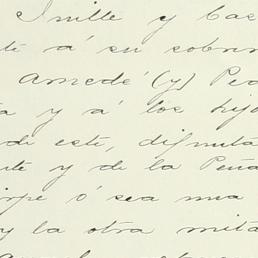 Smille y Cas
té á su sobrin
Amedé (y) Ped
ta y á los hijo
de este, disfruta
te y de la Peña
irpe ó sea una
y la otra mita